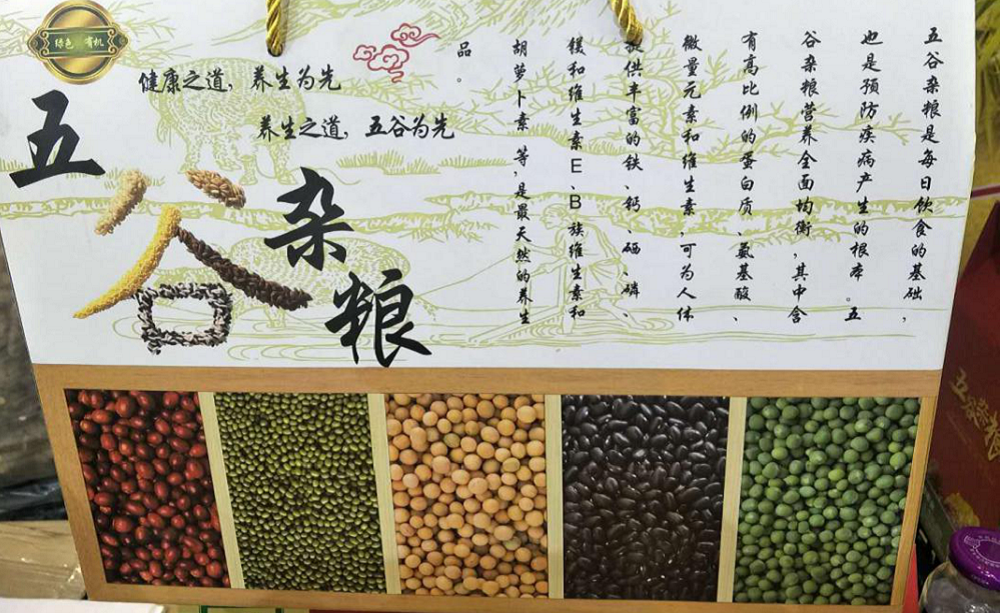 绿色 有机
健康之道，养生为先
养生之道，五谷为先
五谷杂粮
五谷杂粮是每日饮食的基础，
也是预防疾病产生的根本。五
谷杂粮营养全面均衡，其中含
有高比例的蛋白质、氨基酸、
微量元素和维生素，可为人体
提供丰富的铁、钙、硒、磷、
镁和维生素E、B族维生素和
胡萝卜素 等，是最天然的养生
品。
五谷杂粮